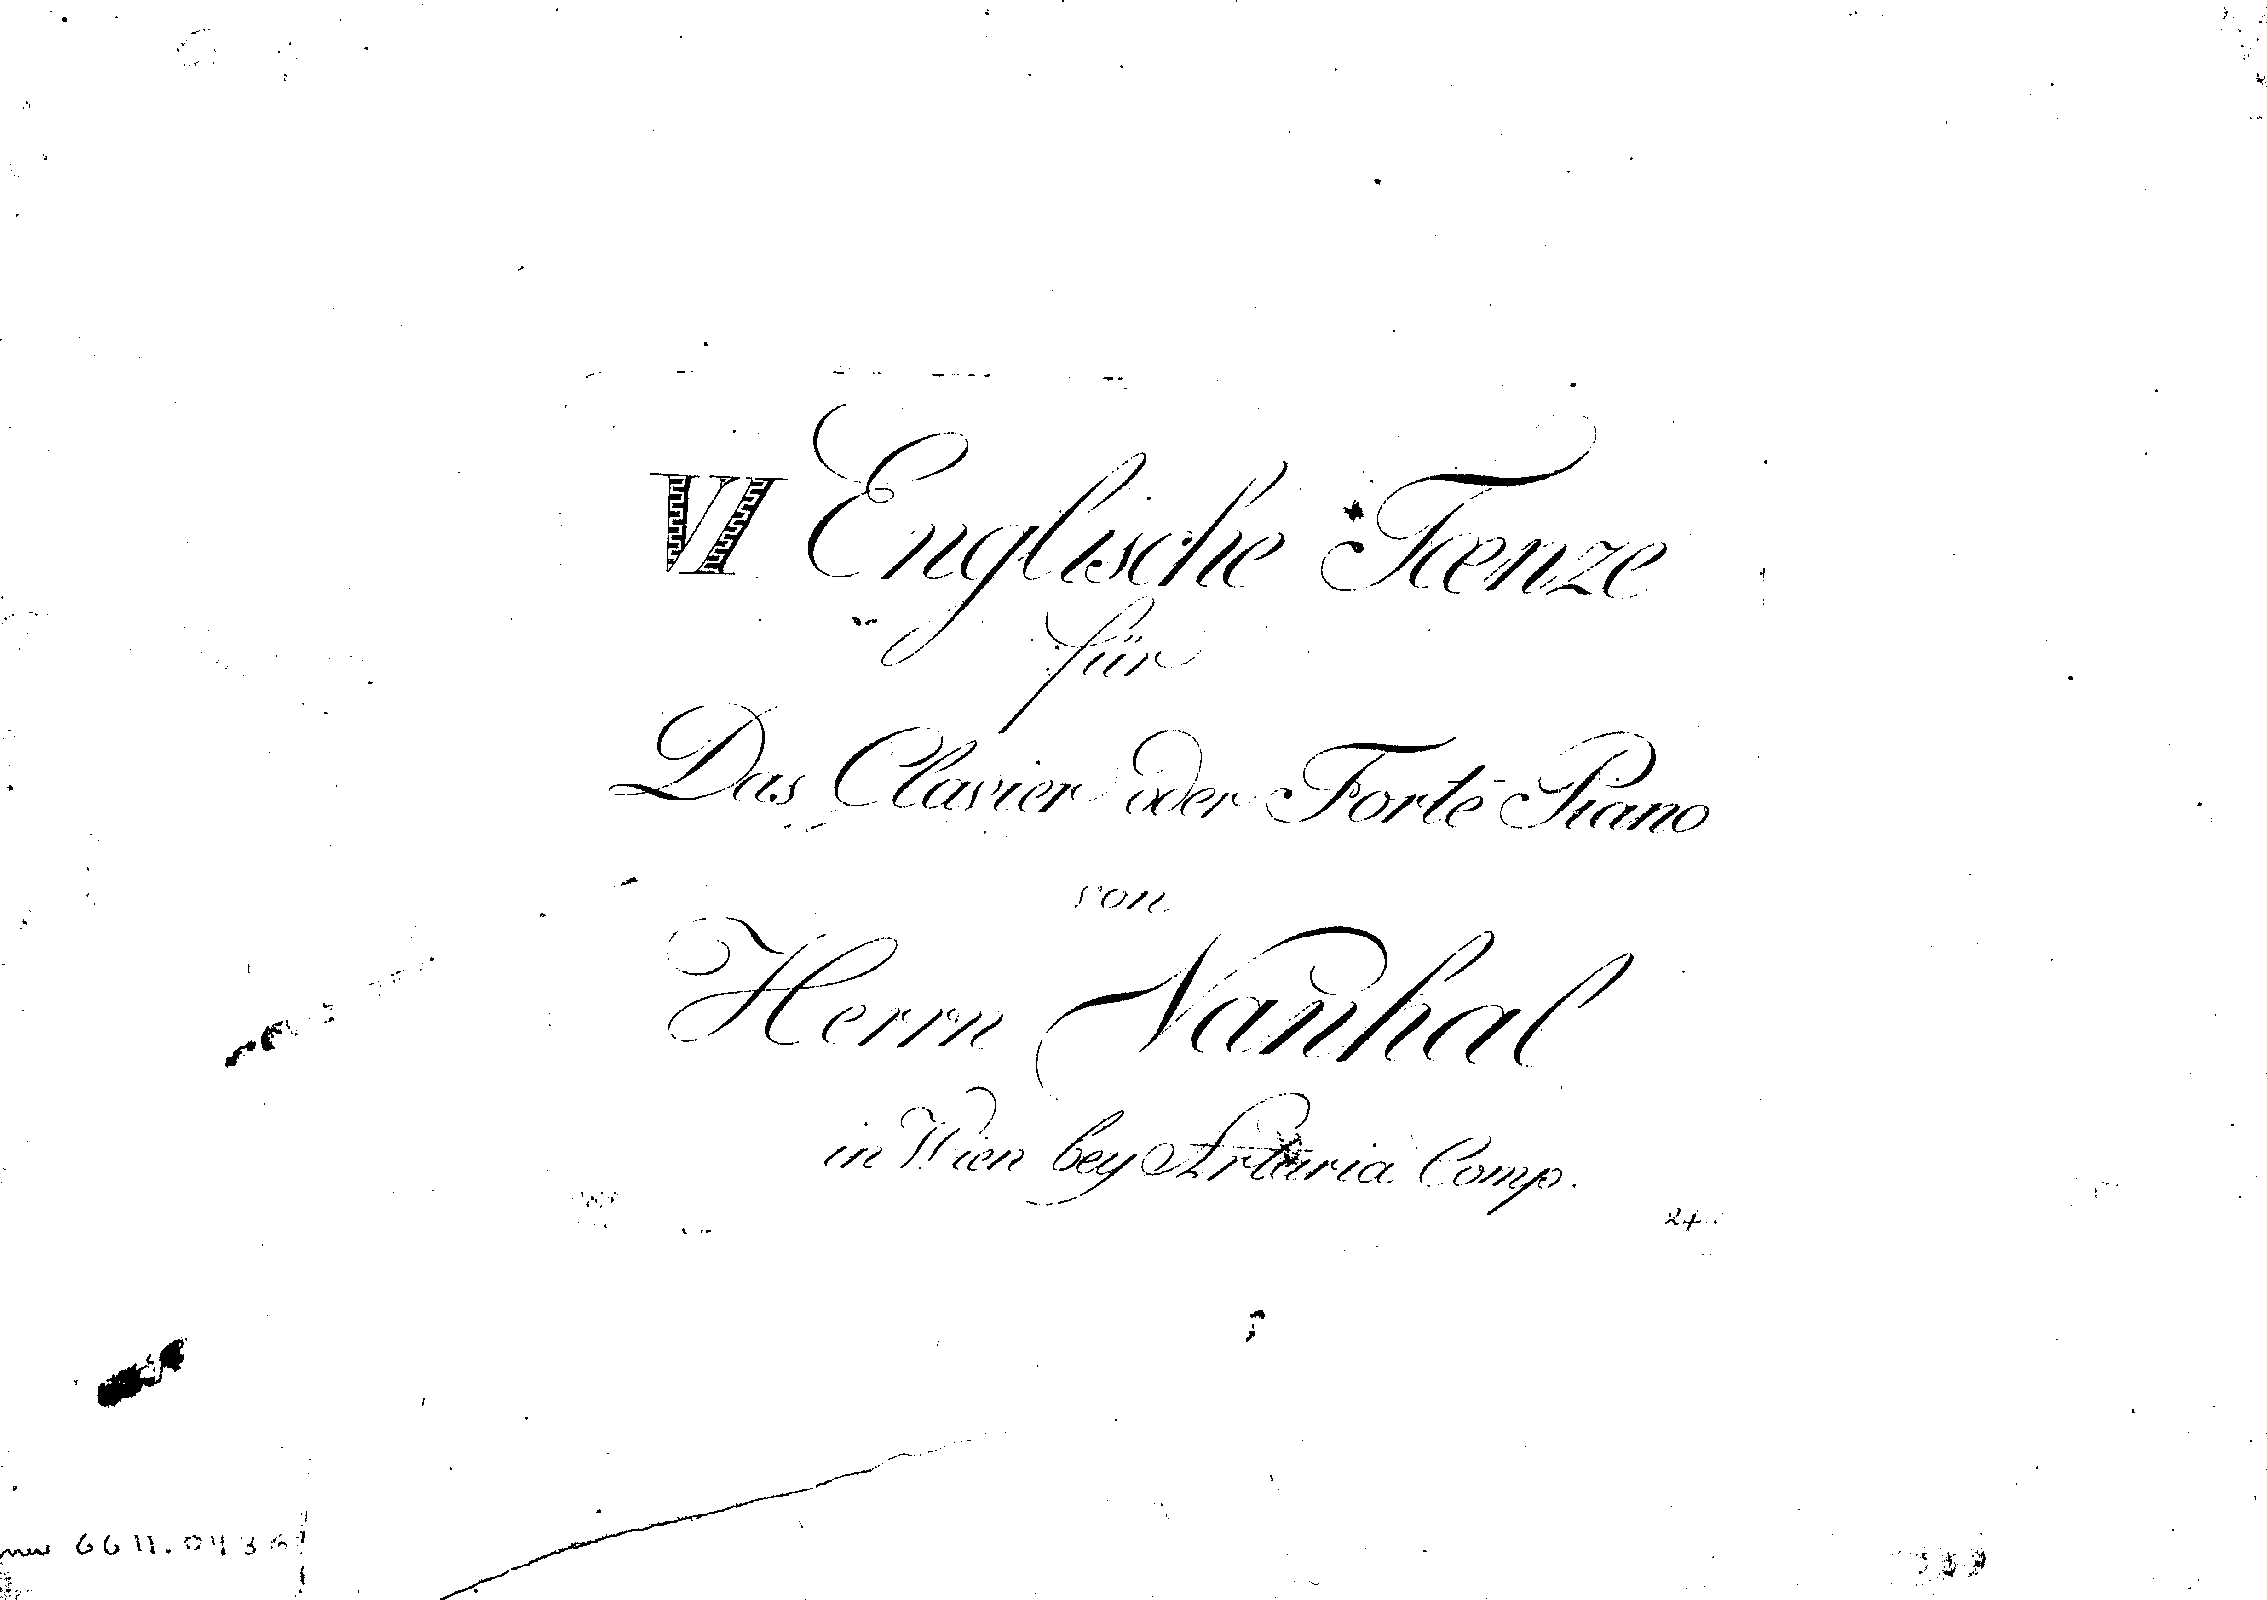 VI Englische Tænze
für
Das Clavier oder Forte Piano
von
Herrn Vanhal
in Wien bey Artaria Comp.
24
mu 6611.0436